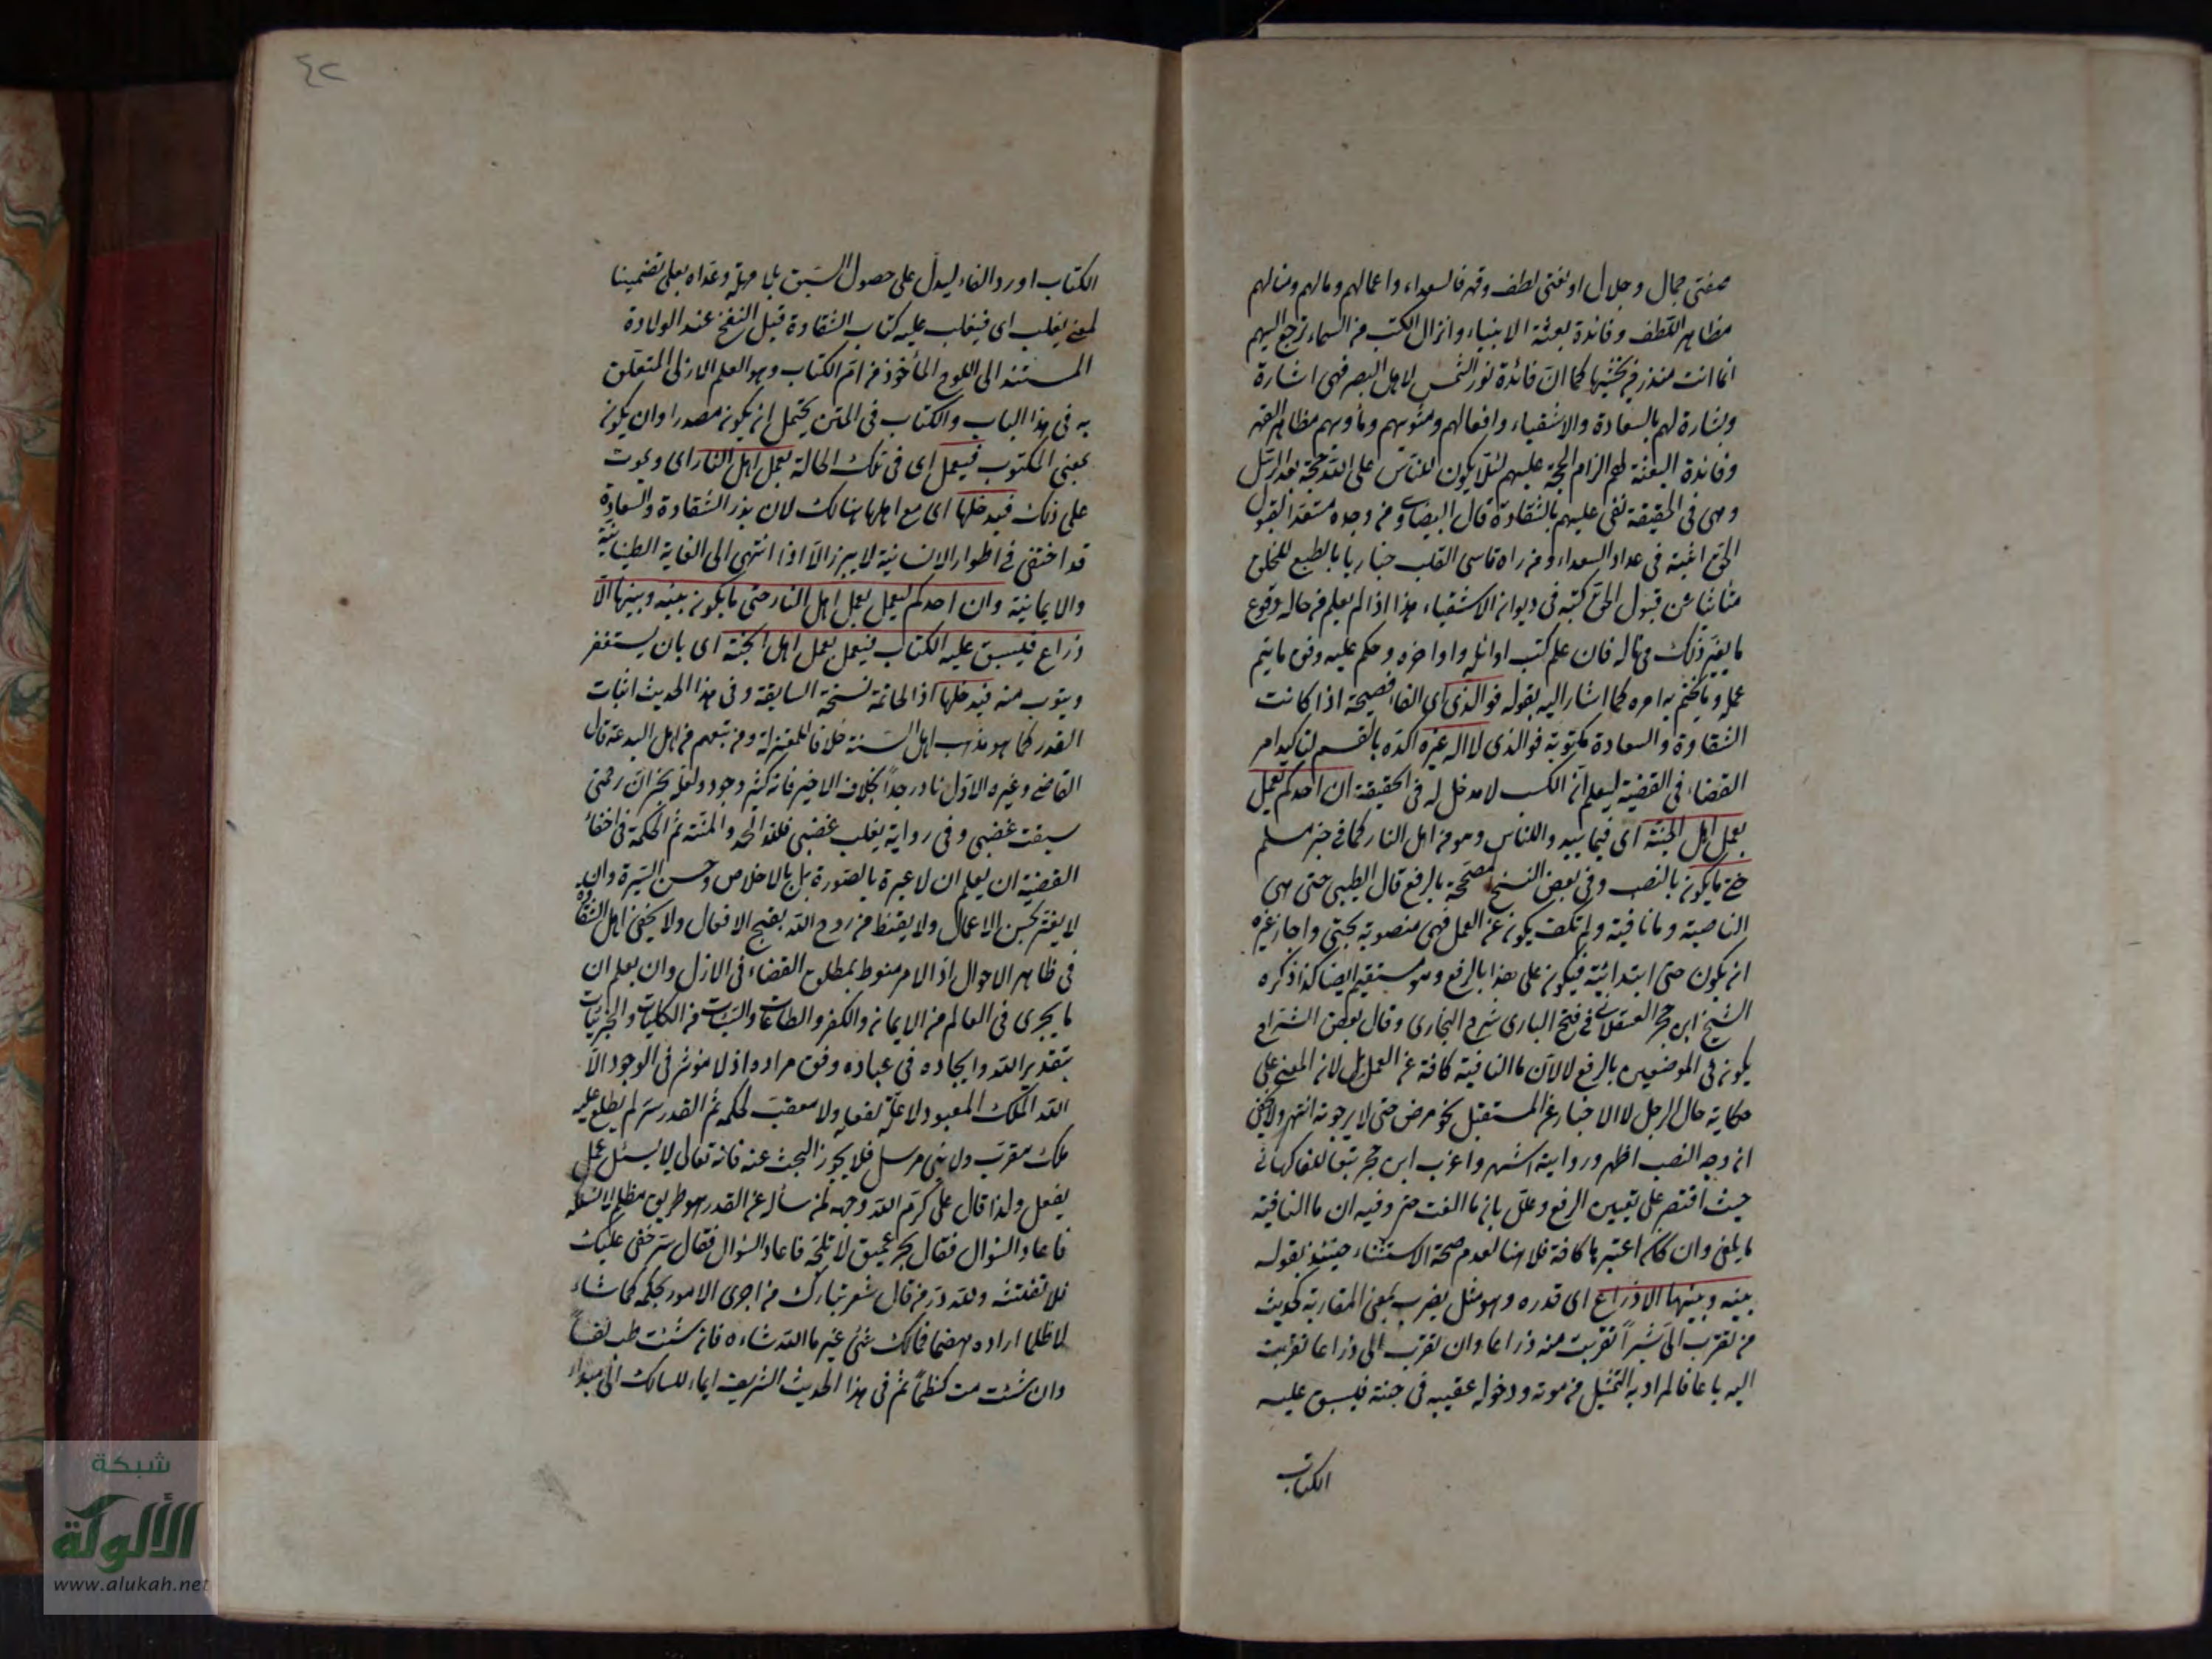 صفتى جمال وجلال او نعتى لطف وقهر فالسعداء واعمالهم ومالهم ومنالهم
مظاهر اللطف وفائدة بعثة الانبياء وانزال الكتب من السماء ترجع اليهم
انما انت منذر من يخشيها كما ان فائدة نور الشمس لاهل البصر فهى اشارة
وبشارة لهم بالسعادة والاشقياء وافعالهم ومثويهم ومأويهم مظاهر القهر
وفائدة البعثة لهم الزام الحجة عليهم لئلا يكون للناس على الله حجة بعد الرسل
وهى فى الحقيقة نعى عليهم بالشقاوة قال البيضاوى من وجده مستعد القبول
الحق اثبته فى عداد السعداء ومن راه قاسى القلب جباريا بالطبع للخلق
متأنيا عن قبول الحق كتبه فى ديوان الاشقياء هذا اذا لم يعلم من حاله وقوع
ما يغير ذلك وماله فان علم كتب اوائله واواخره وحكم عليه وفق ما يتم
عمله وما يختم به امره كما اشار اليه بقوله فو الذى اى الفاء فصيحة اذا كانت
الشقاوة والسعادة مكتوبة فوالذى لا اله غيره اكده بالقسم لتاكيد امر
القضاء فى القضية ليعلم ان الكسب لا مدخل له فى الحقيقة ان احدكم ليعمل
بعمل اهل الجنة اى فيما يبدو للناس وهو من اهل النار كما فى خبر مسلم
حتى ما يكون بالنصب وفى بعض النسخ مصححة بالرفع قال الطيبى حتى هى
الناصبة وما نافية ولم تكف يكون عن العمل فهى منصوبة بحتى واجاز غيره
ان يكون حتى ابتدائية فيكون على هذا بالرفع وهو مستقيم ايضا كذا ذكره
الشيخ ابن حجر العسقلانى فى فتح البارى شرح البخارى وقال بعض الشراح
يكون فى الموضعين بالرفع لا لان ما النافية كافة عن العمل بل لان المعنى على
حكاية حال الرجل لا الاخبار عن المستقبل نحو مرض حتى لا يرجونه انتهى ولا يخفى
ان وجه النصب اظهر وروايته اشهر واغرب ابن حجر تبعا للفاكهانى
حيث اقتصر على تعيين الرفع وعلل بان ما الغت حتى وفيه ان ما النافية
ما يلغى وان كان اعتبر ما كافة فلا هنا لعدم صحة الاستثناء حينئذ بقوله
بينه وبينها الا ذراع اى قدره وهو مثل يضرب لمعنى المقاربة كحديث
من تقرب الى شبرا تقربت منه ذراعا وان تقرب الى ذراعا تقربت
اليه باعا فالمراد به التمثيل من موته ودخوله عقيبه فى جنة فيسبق عليه
الكتاب
٤٢
الكتاب اورد الفاء ليدل على حصول السبق بلا مهلة وعداه بعلى تضمينا
لمعنى يغلب اى فيغلب عليه كتاب الشقاوة قبل النفخ عند الولادة
المستند الى اللوح المأخوذ من ام الكتاب وهو العلم الازلى المتعلق
به فى هذا الباب والكتاب فى المتن يحتمل ان يكون مصدرا وان يكون
بمعنى المكتوب فيعمل اى فى تلك الحالة بعمل اهل النار اى ويموت
على ذلك فيدخلها اى مع اهلها هنالك لان بذر الشقاوة والسعادة
قد اختفى فى اطوار الانسانية لا يبرز الا اذا انتهى الى الغاية الطينانية
والايمانية وان احدكم ليعمل بعمل اهل النار حتى ما يكون بينه وبينها الا
ذراع فيسبق عليه الكتاب فيعمل بعمل اهل الجنة اى بان يستغفر
ويتوب منه فيدخلها اذ الخاتمة نسخة السابقة وفى هذا الحديث اثبات
القدر كما هو مذهب اهل السنة خلافا للمعتزلة ومن تبعهم من اهل البدعة قال
القاضى وغيره الاول نادر جدا بخلاف الاخير فانه كثير وجود ولعله بخبر ان رحمتى
سبقت غضبى وفى رواية يغلب غضبى فلله الحمد والمنة ثم الحكمة فى اخفاء
القضية ان يعلم ان لا عبرة بالصورة بل بالاخلاص وحسن السيرة وانه
لا يغتر بحسن الاعمال ولا يقنط من روح الله بقبح الافعال ولا يخفى اهل الشقاوة
فى ظاهر الاحوال اذ الامر منوط بمطلق القضاء فى الازل وان يعلم ان
ما يجرى فى العالم من الايمان والكفر والطاعات والسيئات من الكليات والجزئيات
بتقدير الله وايجاده فى عباده وفق مراده اذ لا مؤثر فى الوجود الا
الله الملك المعبود لا علة لفعله ولا معقب لحكمه ثم القدر سر لم يطلع عليه
ملك مقرب ولا نبى مرسل فلا يجوز البحث عنه فانه تعالى لا يسئل عما
يفعل ولذا قال على كرم الله وجهه لمن سأله عن القدر هو طريق مظلم لا تسلكه
فاعاد السؤال فقال بحر عميق لا تلجه فاعاد السؤال فقال سر خفى عليك
فلا تفتشه ولله در من قال شعر تبارك من اجرى الامور بحكمه كما شاء
لا ظلما اراد ولا هضما فمالك شئ غير ما الله شاءه فان شئت طب نفسا
وان شئت مت كظما ثم فى هذا الحديث الشريف ايماء للسالك الى مبدأ
شبكة
الألوكة
www.alukah.net